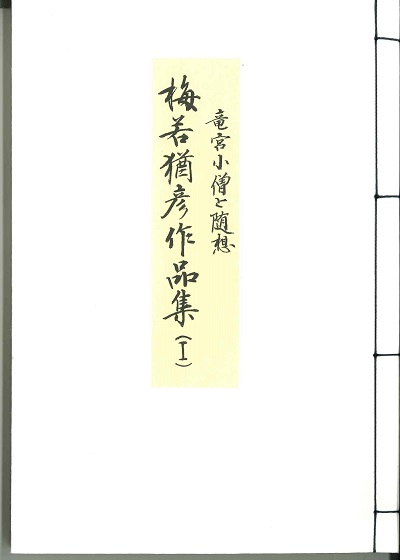 竜宮小僧と随想
梅若猶彦作品集(II)